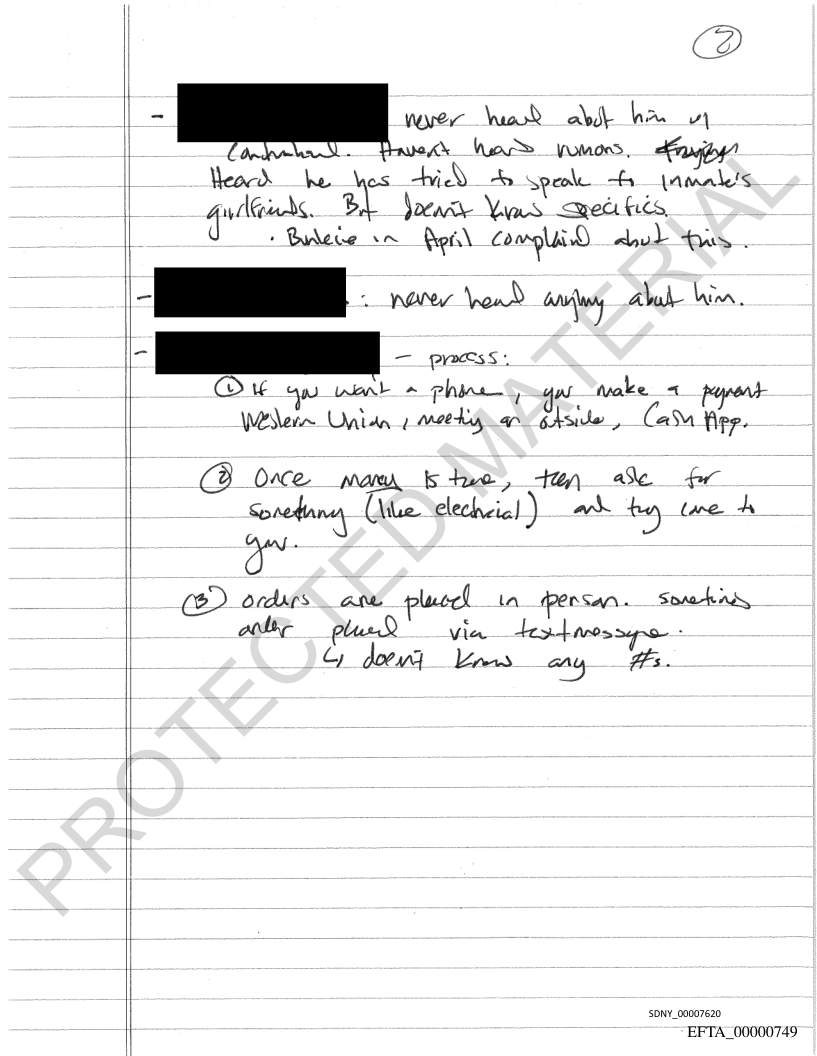 2
- never heard about him w/
Contraband. Haven't heard rumors.
Heard he has tried to speak to inmate's
girlfriends. But doesn't know specifics.
. Believe in April complained about this.
- : never heard anything about him.
- - process:
① If you want a phone, you make a payment
Western Union, meeting on outside, Cash App.
② Once money is there, then ask for
something (like electrical) and they come to
you.
③ orders are placed in person. sometimes
order placed via text message.
↳ doesn't know any #s.
PROTECTED MATERIAL
SDNY_00007620
EFTA_00000749